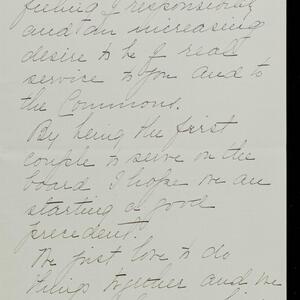 feeling of responsibility
and an increasing
desire to be of real
service to you and to
the Commons.
By being the first
couple to serve on the
board I hope we are
starting a good
precedent.
We just love to do
things together and we